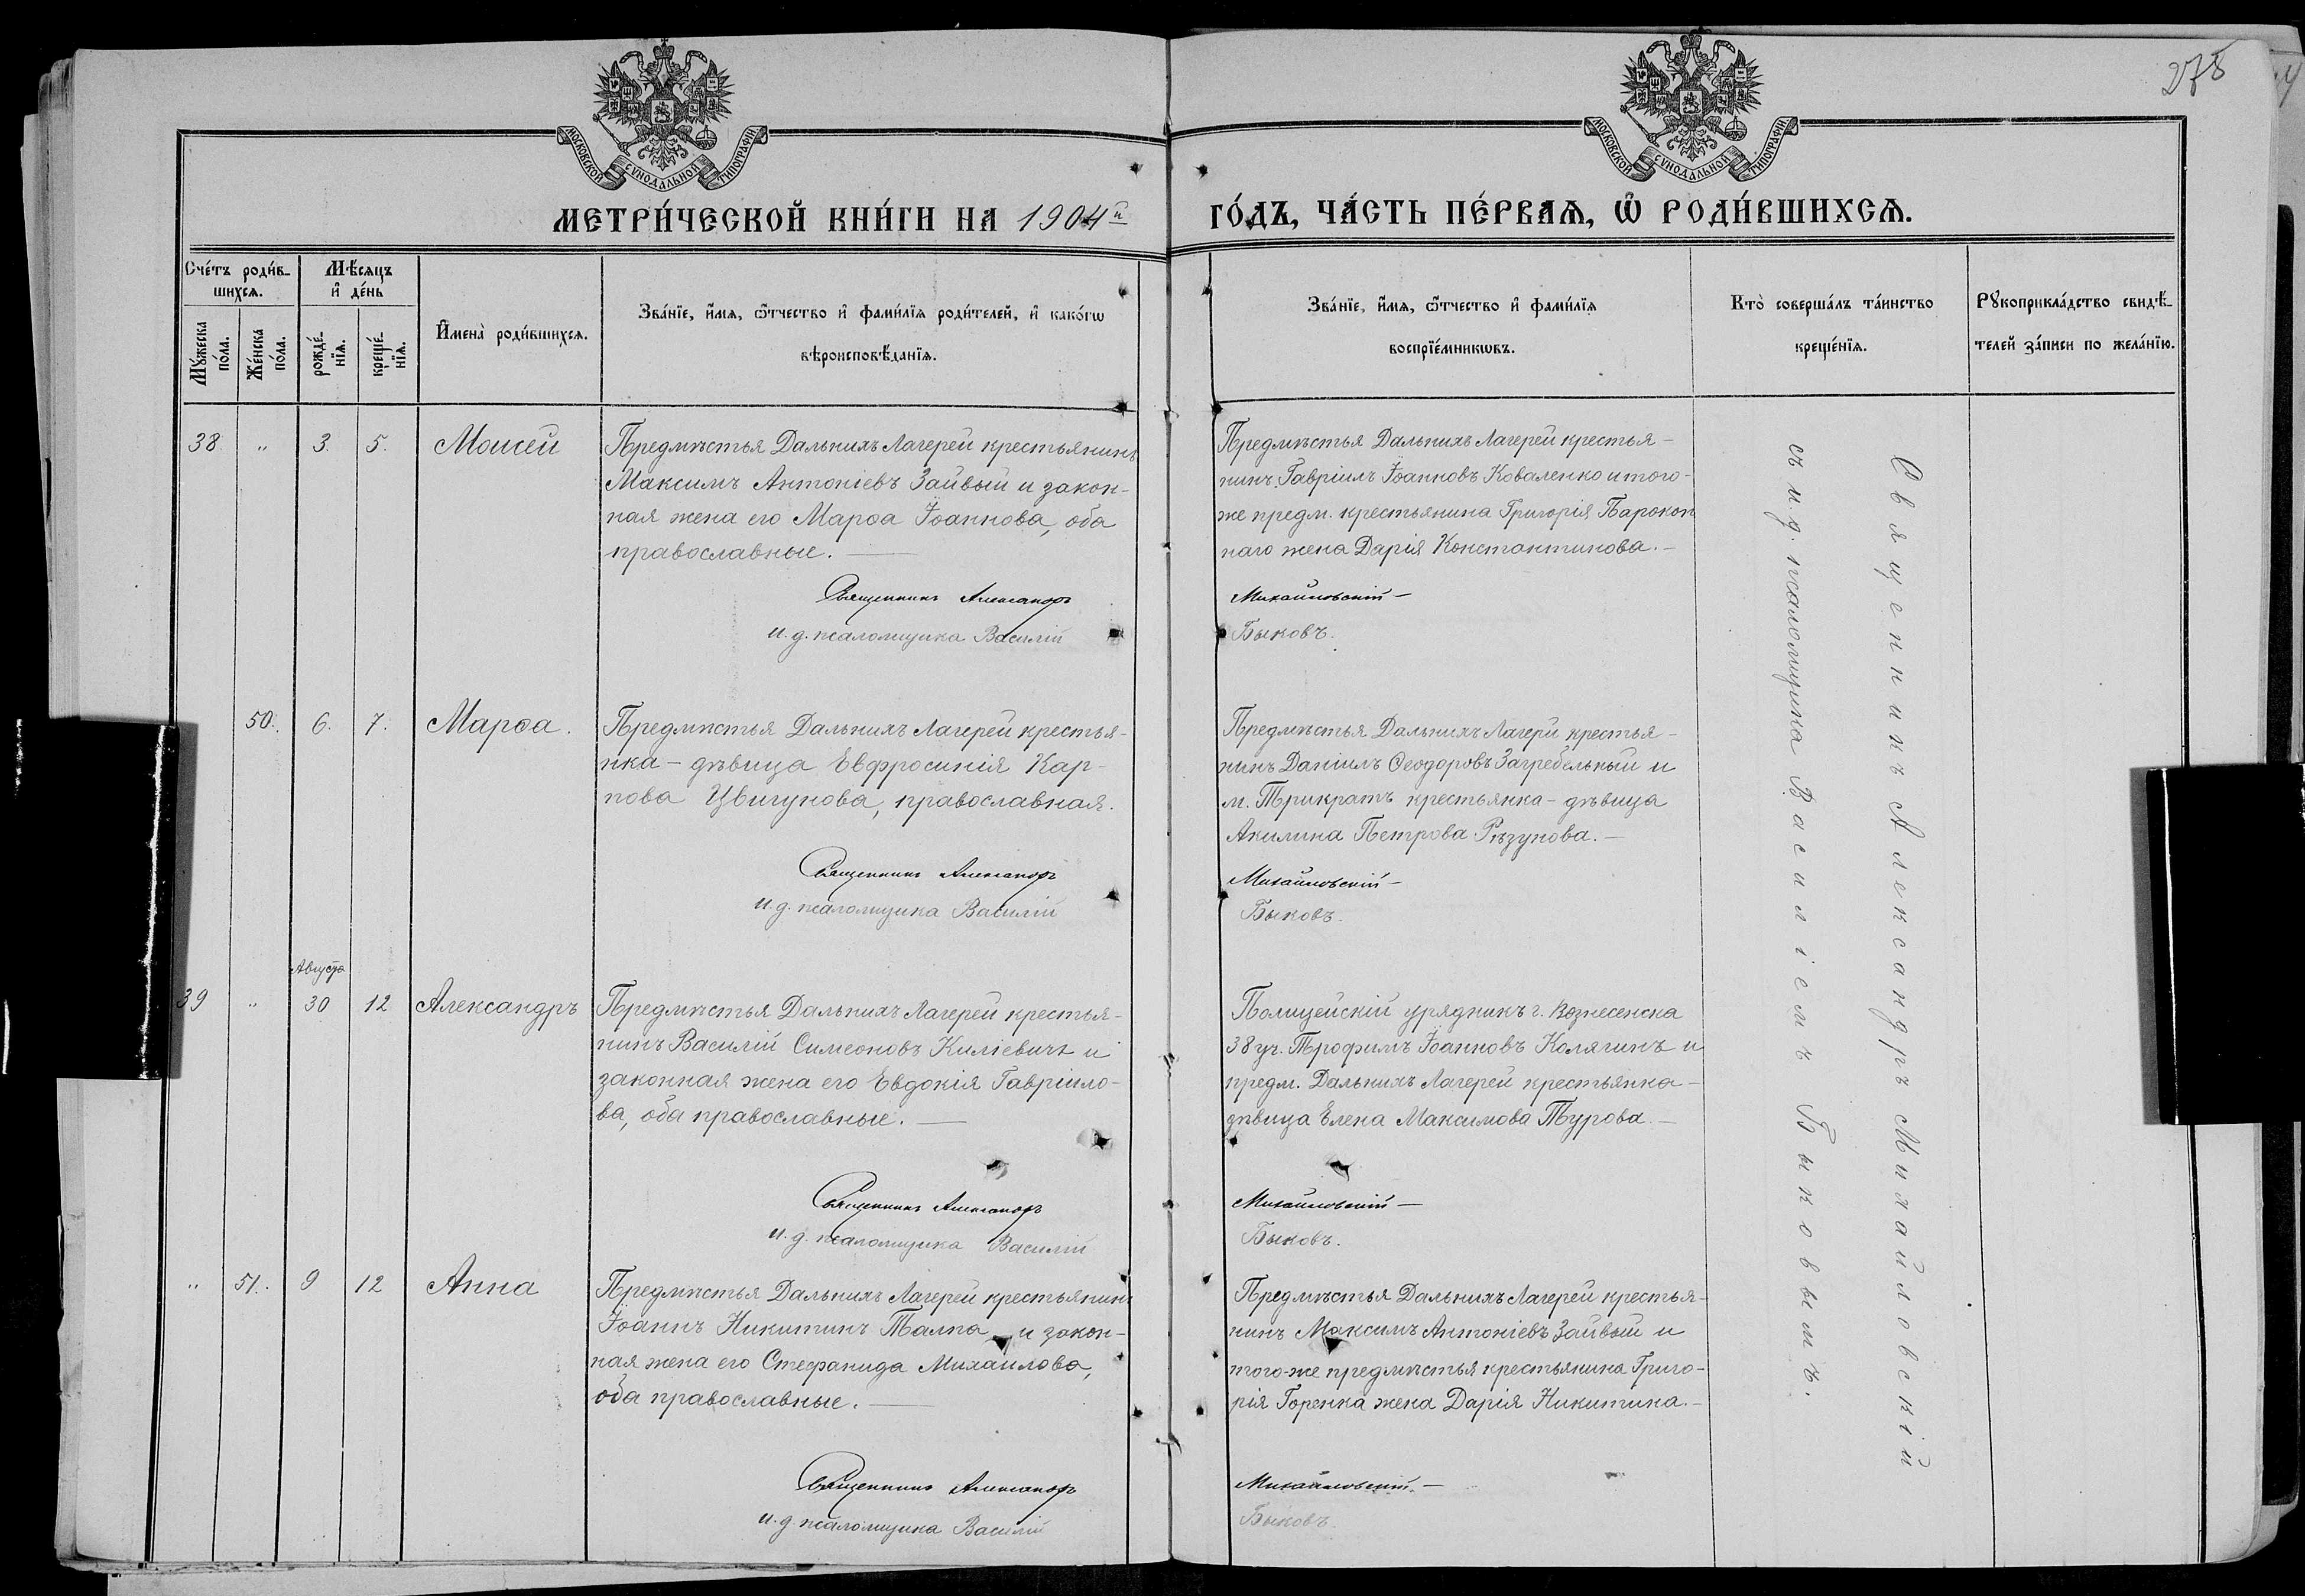 278
МОСКОВСКОЙ СУНОДАЛЬНОЙ ТИПОГРАФІИ
МОСКОВСКОЙ СУНОДАЛЬНОЙ ТИПОГРАФІИ
МЕТРИ́ЧЕСКОЙ КНИ́ГИ НА 1904й
ГО́ДЪ, ЧА́СТЬ ПЕ́РВАѦ, Ѽ РОДИ́ВШИХСѦ.
Сче́тъ роди́в-
шихсѧ.
Мѣ́сяцъ
и҆ де́нь
Мꙋ́жеска
по́ла.
Же́нска
по́ла.
рожде́-
нїѧ.
креще́-
нїѧ.
И҆мена̀ роди́вшихсѧ.
Зва́нїе, и҆́мѧ, ѻ҆́тчество и҆ фами́лїѧ роди́телей, и҆ како́гѡ
вѣроисповѣ́данїѧ.
Зва́нїе, и҆́мѧ, ѻ҆́тчество и҆ фами́лїѧ
воспрїе́мникѡвъ.
Кто̀ соверша́лъ та́инство
креще́нїѧ.
Рꙋкоприкла́дство свидѣ́-
телей за́писи по жела́нїю.
38 " 3. 5. Моисей
Предмѣстья Дальнихъ Лагерей крестьянинъ
Максимъ Антоніевъ Зайвый и закон-
ная жена его Марѳа Іоаннова, оба
православные.
Священникъ Александръ
и. д. псаломщика Василій
Предмѣстья Дальнихъ Лагерей крестья-
нинъ Гавріилъ Іоанновъ Коваленко и того-
же предм. крестьянина Григорія Парокон
наго жена Дарія Константинова.
Михайловскій
Быковъ.
50. 6. 7. Марѳа.
Предмѣстья Дальнихъ Лагерей крестья-
нка - дѣвица Евфросинія Кар-
пова Цвигунова, православная.
Священникъ Александръ
и. д. псаломщика Василій
Предмѣстья Дальнихъ Лагери крестья-
нинъ Даніилъ Ѳеодоровъ Загребельный и
м. Трикратъ крестьянка - дѣвица
Акилина Петрова Рѣзунова.
Михайловскій
Быковъ.
Августа
39 " 30 12 Александръ
Предмѣстья Дальнихъ Лагерей крестья-
нинъ Василій Симеоновъ Киліевичъ и
законная жена его Евдокія Гавріило-
ва, оба православные.
Священникъ Александръ
и. д. псаломщика Василій
Полицейскій урядникъ г. Вознесенска
38 уч. Трофимъ Іоанновъ Колягинъ и
предм. Дальнихъ Лагерей крестьянка-
дѣвица Елена Максимова Турова.
Михайловскій
Быковъ.
" 51. 9 12 Анна
Предмѣстья Дальнихъ Лагерей крестьянинъ
Іоаннъ Никитинъ Талпа и закон-
ная жена его Стефанида Михаилова,
оба православные.
Священникъ Александръ
и. д. псаломщика Василій
Предмѣстья Дальнихъ Лагерей крестья-
нинъ Максимъ Антоніевъ Зайвый и
того-же предмѣстья крестьянина Григо-
рія Горенка жена Дарія Никитина.
Михайловскій
Быковъ
Священникъ Александръ Михайловскій
съ и. д. псаломщика Василіемъ Быковымъ.